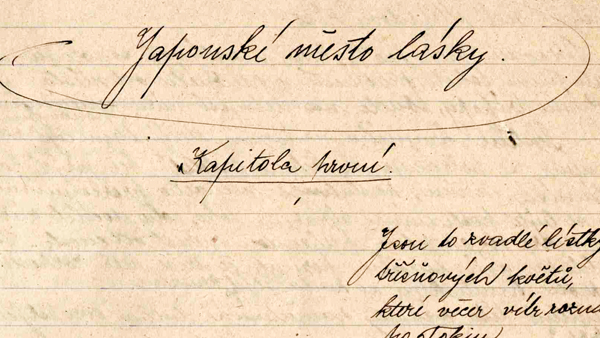 Japonské město lásky.
Kapitola první.
Jsou to zvadlé lístky
třešňových květů,
které večer vítr
po Tokiu